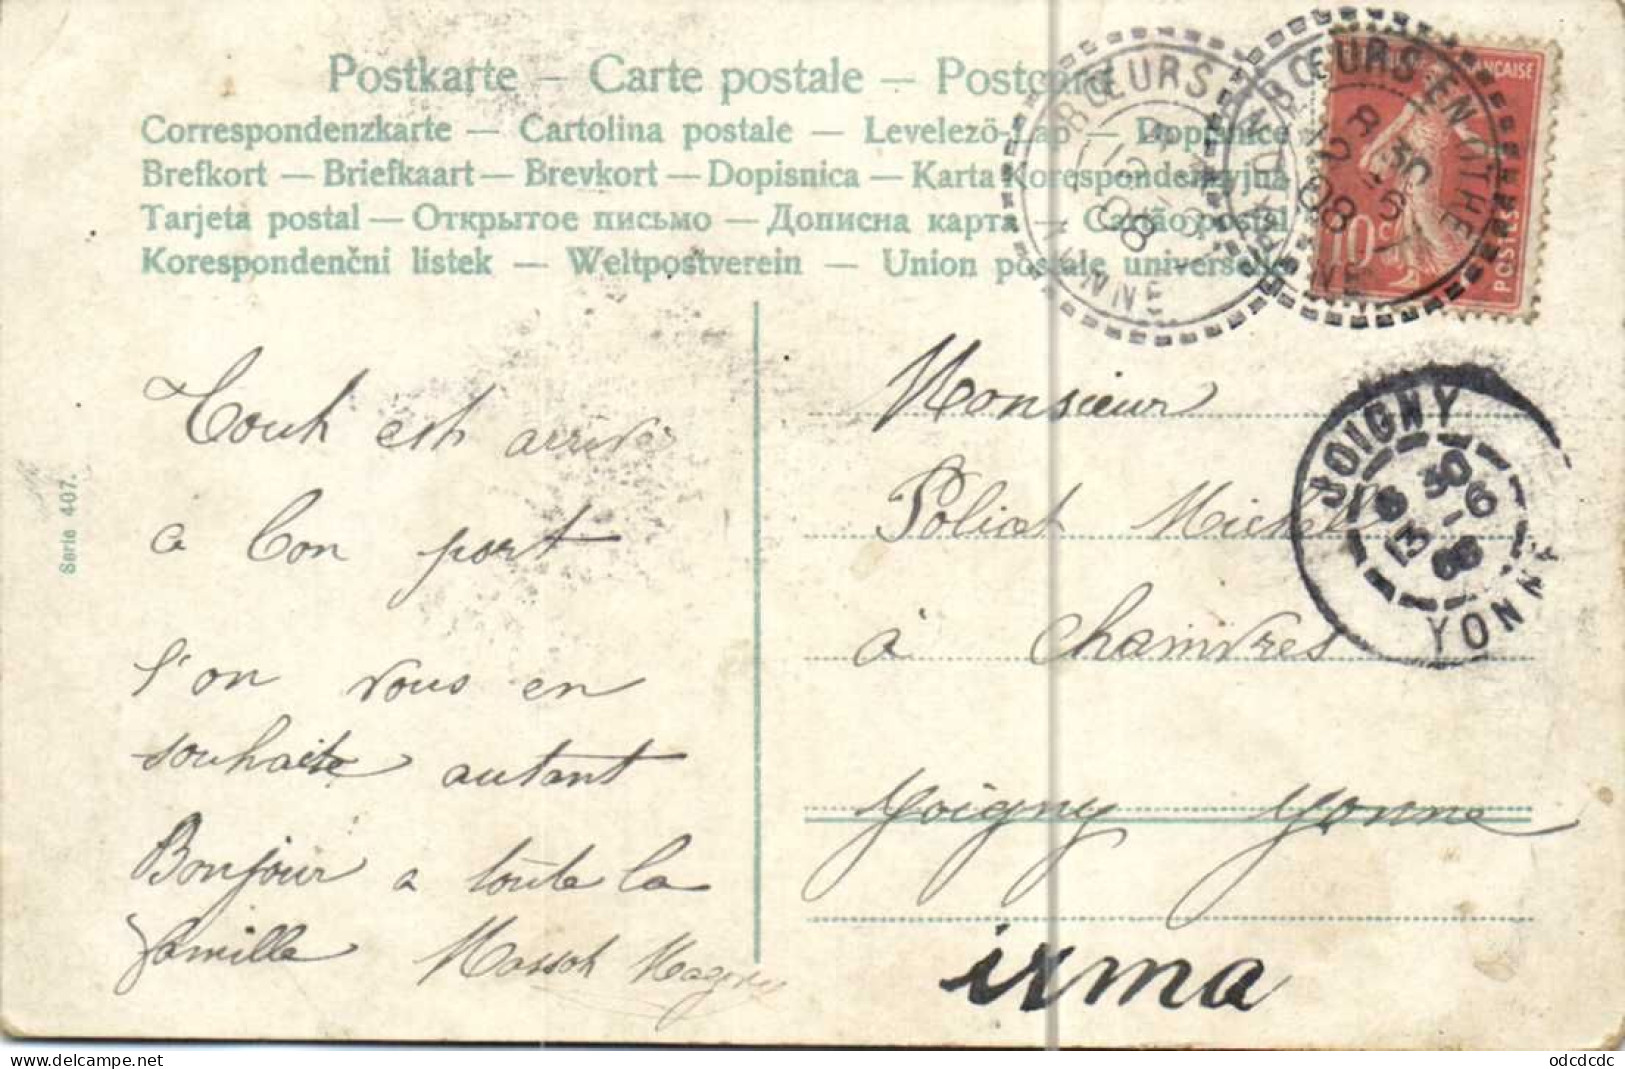 Postkarte — Carte postale — Postcard
Correspondenzkarte — Cartolina postale — Levelezö-Lap — Dopisnice
Brefkort — Briefkaart — Brevkort — Dopisnica — Karta Korespondencyjna
Tarjeta postal — Открытое письмо — Дописна карта — Cartão postal
Korespondenčni listek — Weltpostverein — Union postale universelle
BŒURS EN
YONNE
BŒURS EN OTHE
8 30
12 5
08
FRANÇAISE
10 c
POSTES
JOIGNY
8 30
13 - 6
08
YONNE
Serie 407.
Touh est arrivé
a bon port
l'on vous en
souhaite autant
Bonjour a toute la
famille Massot
Monsieur
Policet Michel
à Chamvres
Joigny Yonne
irma
odcdcdc